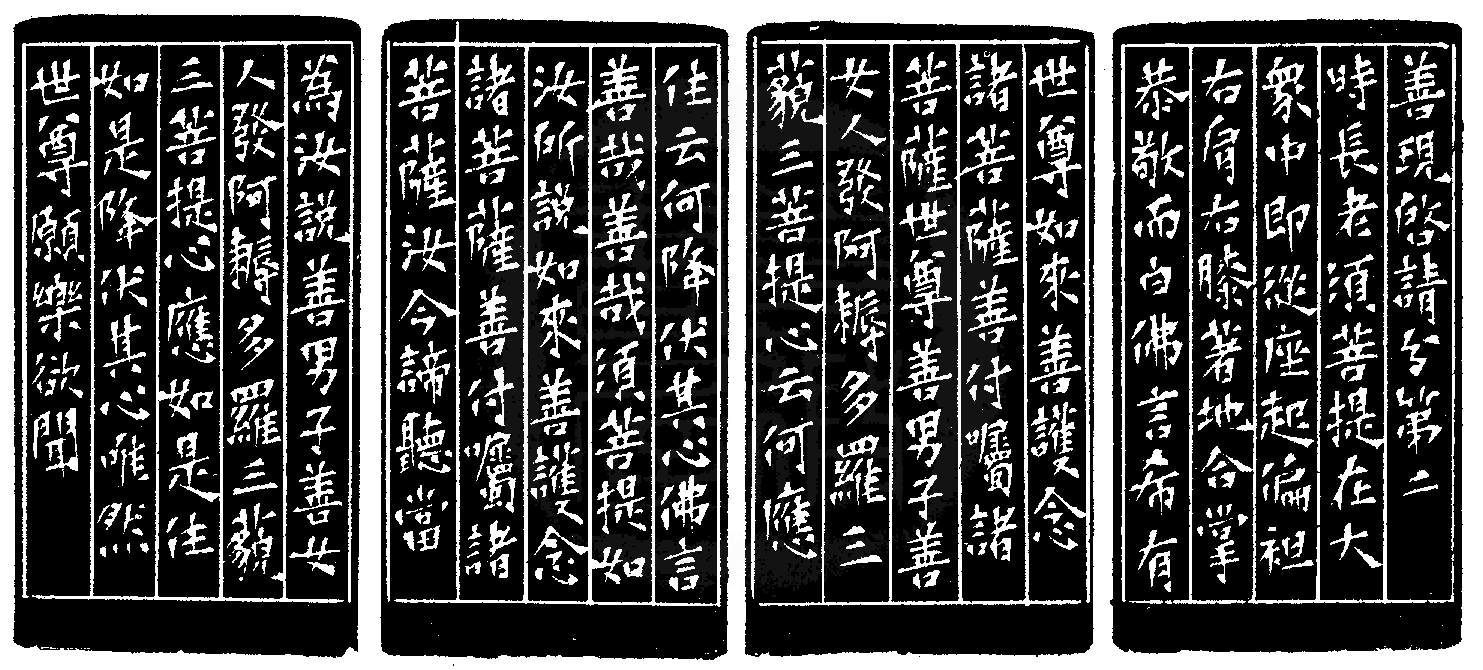 善現啓請分第二
時長老須菩提在大
衆中即從座起偏袒
右肩右膝著地合掌
恭敬而白佛言希有
世尊如來善護念
諸菩薩善付囑諸
菩薩世尊善男子善
女人發阿耨多羅三
藐三菩提心云何應
住云何降伏其心佛言
善哉善哉須菩提如
汝所說如來善護念
諸菩薩善付囑諸
菩薩汝今諦聽當
為汝說善男子善女
人發阿耨多羅三藐
三菩提心應如是住
如是降伏其心唯然
世尊願樂欲聞